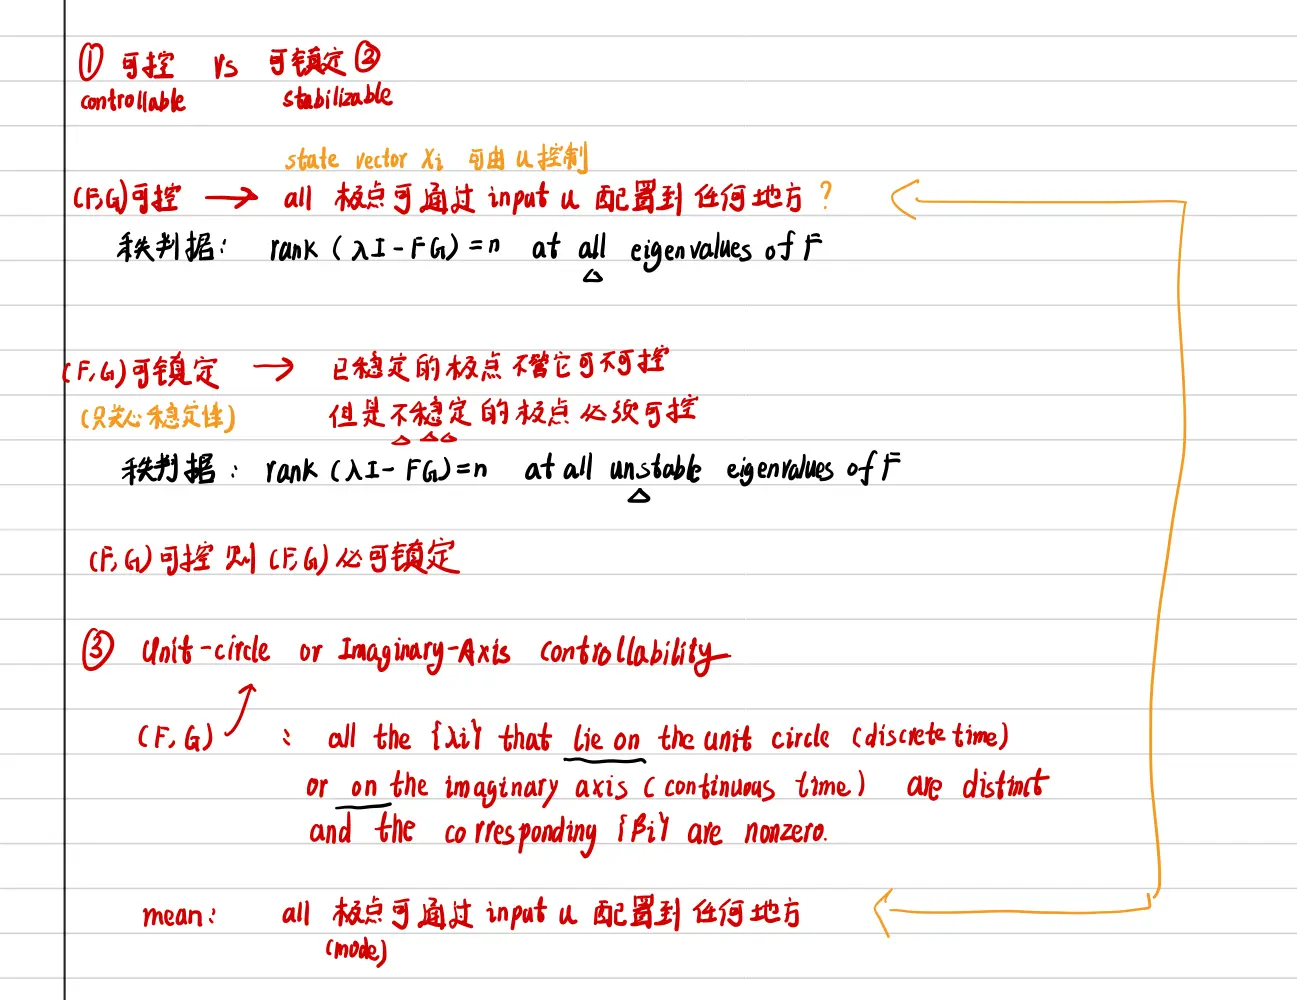 ① 可控 vs 可镇定 ②
controllable stabilizable
state vector Xi 可由 u 控制
(F,G)可控 → all 极点可通过 input u 配置到任何地方？
秩判据: rank (λI-FG)=n at all eigenvalues of F
(F,G)可镇定 → 已稳定的极点不管它可不可控
(只关心稳定性) 但是不稳定的极点必须可控
秩判据: rank (λI-FG)=n at all unstable eigenvalues of F
(F,G)可控则(F,G)必可镇定
③ Unit-circle or Imaginary-Axis controllability
(F,G) : all the {λi} that lie on the unit circle (discrete time)
or on the imaginary axis (continuous time) are distinct
and the corresponding {βi} are nonzero.
mean: all 极点可通过 input u 配置到任何地方
(mode)